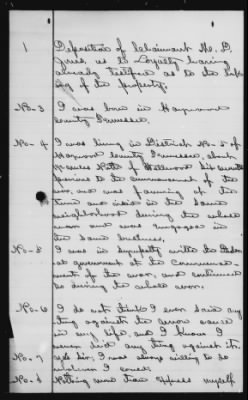 1 Deposition of Claimant M. B.
as to Loyalty having
already testified as to the
of the property.
No-3 I was born in Haywood
County Tennessee.
No-4 I was living in District No-5 of
Haywood County Tennessee, about
miles
previous to the commencement of the
war, and was farming at the
time and resided in the same
neighborhood during the whole
war and was engaged in
the same business,
No-5 I was in sympathy with the
government at the commence-
ment of the war, and continued
so during the whole war.
No-6 I do not think I ever said any
thing against the union cause
in my life, and I know I
never did any thing against it.
No-7 sir, I was always willing to do
whatever I could.
No-8 Nothing more than express myself